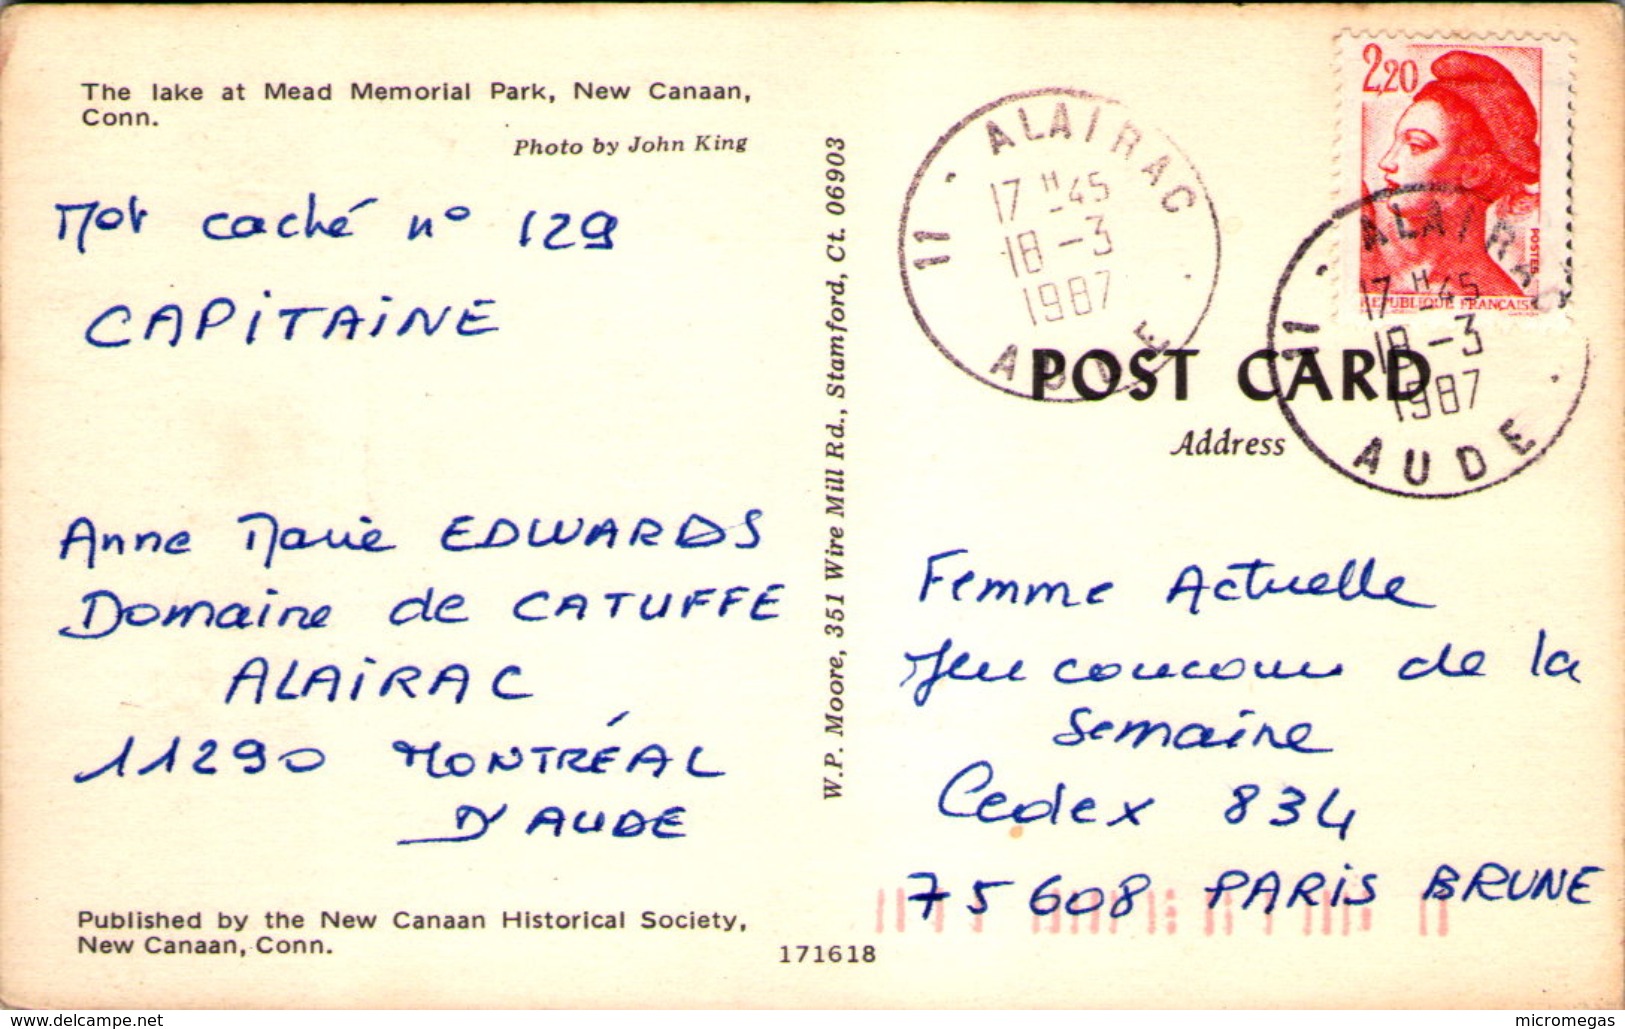 The lake at Mead Memorial Park, New Canaan,
Conn.
Photo by John King
Mot caché n° 129
CAPITAINE
Anne Marie EDWARDS
Domaine de CATUFFE
ALAIRAC
11290 MONTRÉAL
D'AUDE
Published by the New Canaan Historical Society,
New Canaan, Conn.
171618
W.P. Moore, 351 Wire Mill Rd., Stamford, Ct. 06903
11 - ALAIRAC
17 H -45
18 -3
1987
AUDE
2,20
POSTES
REPUBLIQUE FRANÇAISE
11 - ALAIRAC
17 H -45
18 -3
1987
AUDE
POST CARD
Address
Femme Actuelle
Jeu concours de la
Semaine
Cedex 834
75608 PARIS BRUNE
www.delcampe.net
micromegas